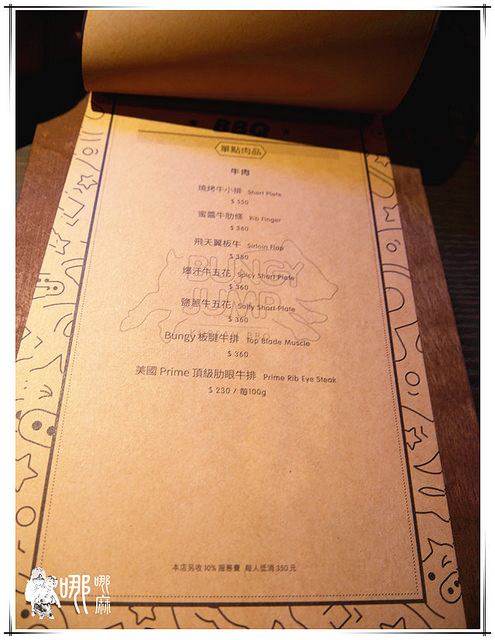 BBQ
單點肉品
牛肉
燒烤牛小排 Short Plate
$ 550
蜜醬牛肋條 Rib Finger
$ 380
飛天翼板牛 Sirloin Flap
$ 380
爆汗牛五花 Spicy Short Plate
$ 360
鹽蔥牛五花 Salty Short Plate
$ 360
Bungy 板腱牛排 Top Blade Muscle
$ 360
美國 Prime 頂級肋眼牛排 Prime Rib Eye Steak
$ 230 / 每100g
BUNGY
JUMP
本店另收 10% 服務費 每人低消 350 元
哪哪麻